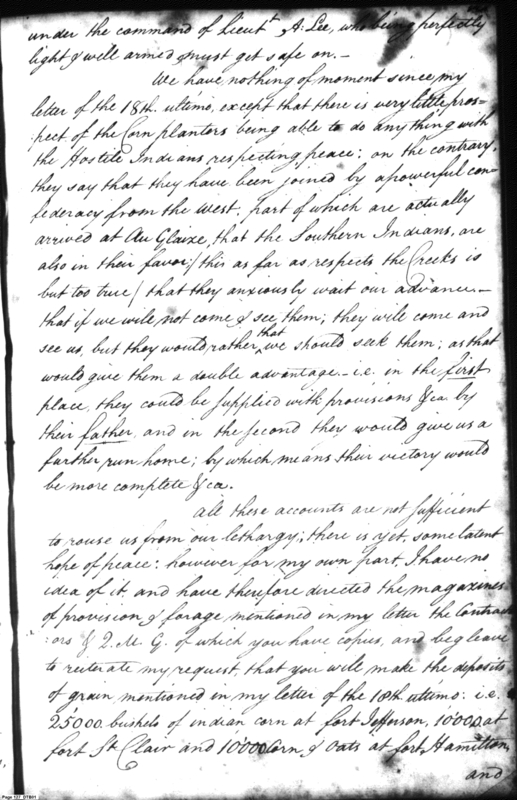 under the command of Lieut^t A: Lee, who being perfectly
light & well armed must get safe on. –
We have nothing of moment since my
letter of the 18th. ultimo, except that there is very little pros=
:pect of the Corn planters being able to do any thing with
the Hostile Indians respecting peace: on the contrary,
they say that they have been joined by a powerful con=
federacy from the West. part of which are actually
arrived at Au Glaize, that the Southern Indians, are
also in their favor: / this as far as respects the Creeks is
but too true / that they anxiously wait our advance –
that if we will not come & see them; they will come and
see us, but they would rather that we should seek them; as that
would give them a double advantage – i.e. in the first
place, they could be supplied with provisions &ca by
their father, and in the second they would give us a
further run home; by which means their victory would
be more complete &ca.
all these accounts are not sufficient
to rouse us from our lethargy; there is yet, some latent
hope of peace: however for my own part, I have no
idea of it, and have therefore directed the magazines
of provision & forage mentioned in my letter the Contract
:ors & Q. M. G. of which you have copies, and beg leave
to reiterate my request, that you will make the deposits
of grain mentioned in my letter of the 18th ultimo: i.e.
25000 bushels of indian corn at fort Jefferson, 10'000 at
fort St Clair and 10'000 Corn & Oats at fort Hamilton,
and
Page 127 D1B01